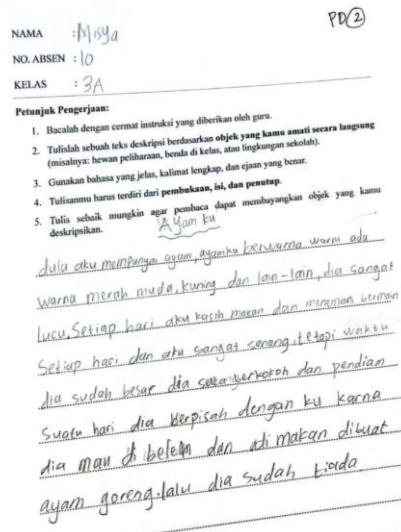 PD(2)
NAMA : Misya
NO. ABSEN : 10
KELAS : 3A
Petunjuk Pengerjaan:
1. Bacalah dengan cermat instruksi yang diberikan oleh guru.
2. Tulislah sebuah teks deskripsi berdasarkan objek yang kamu amati secara langsung
(misalnya: hewan peliharaan, benda di kelas, atau lingkungan sekolah).
3. Gunakan bahasa yang jelas, kalimat lengkap, dan ejaan yang benar.
4. Tulisanmu harus terdiri dari pembukaan, isi, dan penutup.
5. Tulis sebaik mungkin agar pembaca dapat membayangkan objek yang kamu
deskripsikan.
Ayam ku
dulu aku mempunya ayam, ayamku berwarna warni ada
warna merah muda, kuning dan lain-lain, dia sangat
lucu. Setiap hari aku kasih makan dan minum bermain
Setiap hari dan aku sangat senang, tetapi waktu
dia sudah besar dia berkokoh dan pendiam
Suatu hari dia berpisah dengan ku karna
dia mau di dan di makan dibuat
ayam goreng. lalu dia sudah tiada